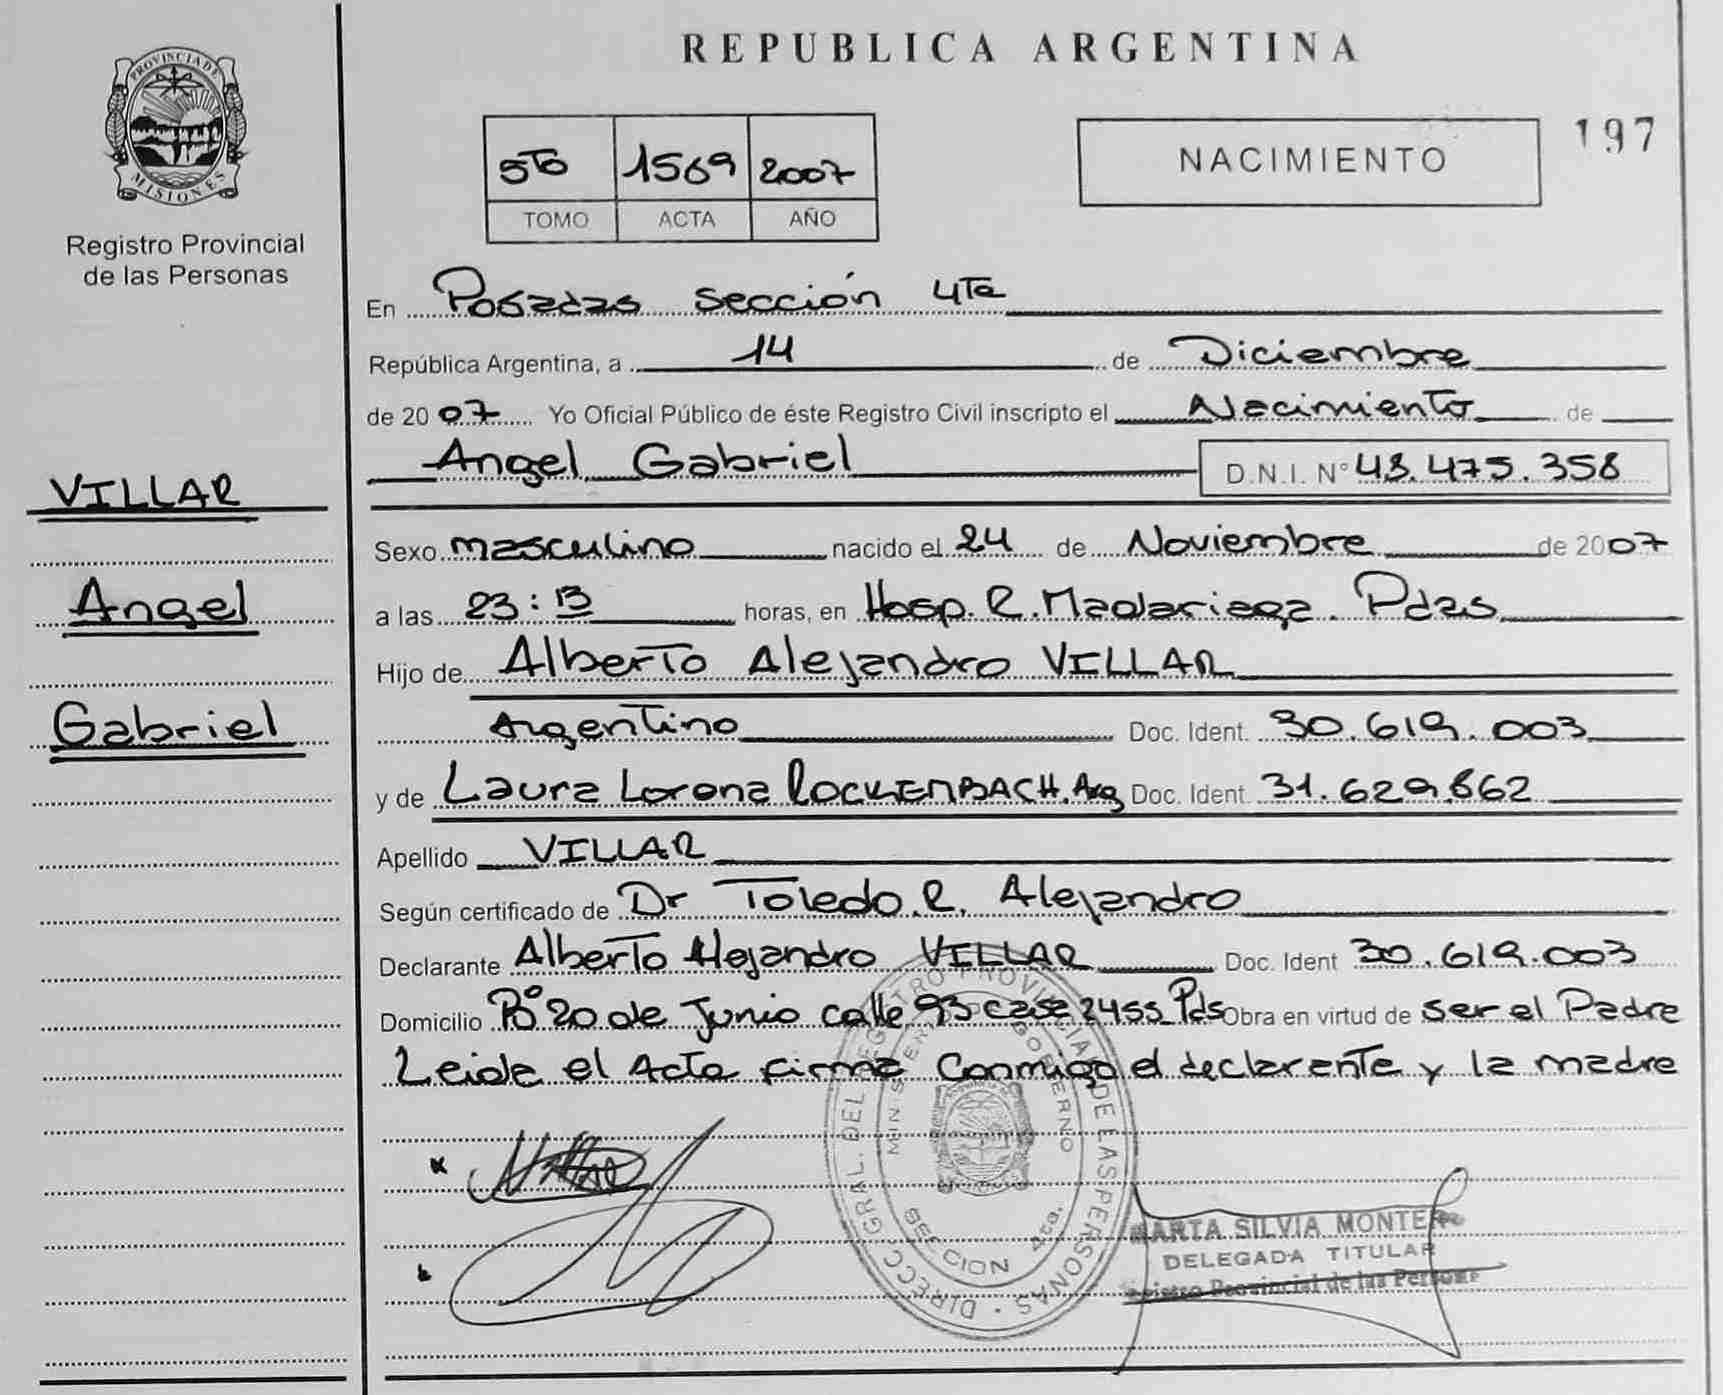 REPUBLICA ARGENTINA
PROVINCIA DE
MISIONES
Registro Provincial
de las Personas
5TO 1569 2007
TOMO ACTA AÑO
NACIMIENTO
197
En Posadas Sección 4Ta
República Argentina, a 14 de Diciembre
de 2007 Yo Oficial Público de éste Registro Civil inscripto el Nacimiento de
Angel Gabriel D.N.I. N° 48.475.358
VILLAR
Angel
Gabriel
Sexo masculino nacido el 24 de Noviembre de 2007
a las 23:13 horas, en Hosp. R. Madariaga. Pdas
Hijo de Alberto Alejandro VILLAR
Argentino Doc. Ident. 30.619.003
y de Laura Lorena ROCKENBACH. Arg Doc. Ident. 31.629.862
Apellido VILLAR
Según certificado de Dr Toledo. R. Alejandro
Declarante Alberto Alejandro VILLAR Doc. Ident 30.619.003
Domicilio B° 20 de Junio calle 93 casa 2455 Pds Obra en virtud de ser el Padre
Leida el Acta firma Conmigo el declarante y la madre
DIRECC. GRAL. DEL REGISTRO PROVINCIAL DE LAS PERSONAS
MINISTERIO GOBIERNO
SECCION 4ta.
MARTA SILVIA MONTERO
DELEGADA TITULAR
Registro Provincial de las Personas